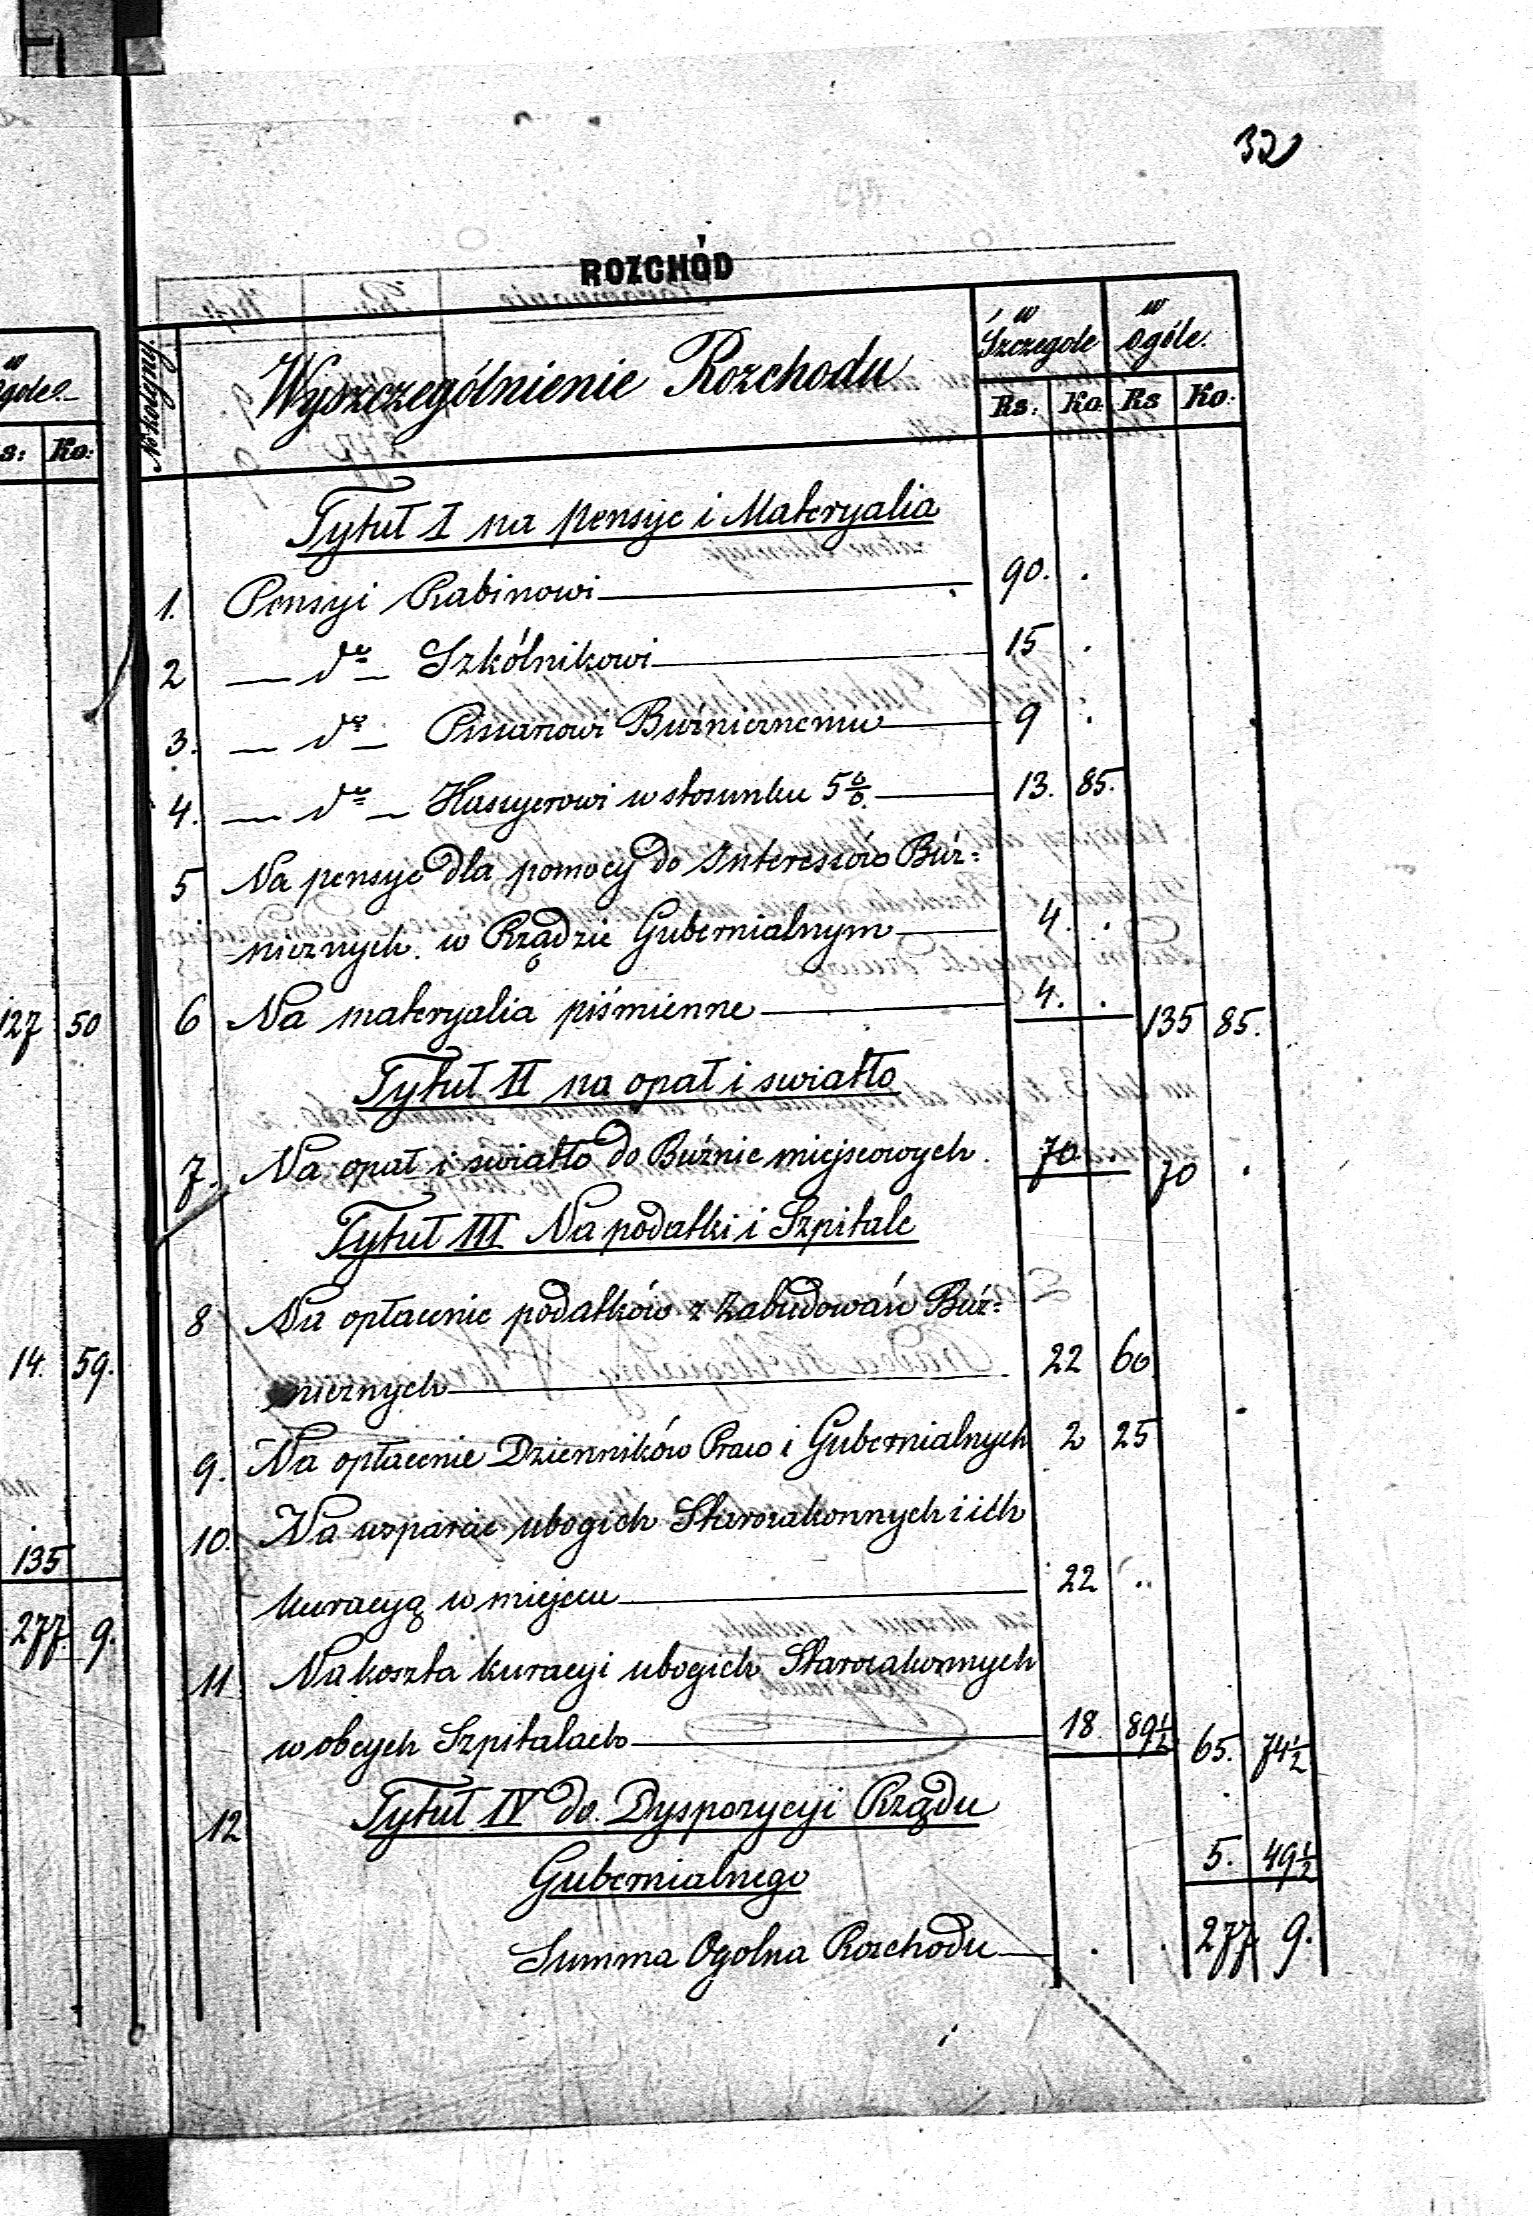 32
ROZCHÓD
No kolejny
Wyszczególnienie Rozchodu
w Szczególe
w ogóle.
Rs: Ko. Rs Ko.
gole
s: Ko:
Tytuł I na pensye i Materyalia
1. Pensyi Rabinowi 90. .
2 do Szkólnikowi 15 .
3. do Pisarzowi Bużnicznemu 9 .
4. do Kassyerowi w stosunku 5% 13. 85.
5 Na pensye dla pomocy do Interessów Buż=
nicznych. w Rządzie Gubernialnym 4. .
6 Na materyalia piśmienne 4. . 135 85.
127 50
Tytuł II na opał i swiatło
7. Na opał i swiatło do Bużnic miejscowych. 70 . 70 .
Tytuł III Na podatki i Szpitale
8 Na opłacenie podatków z Zabudowań Buż=
nicznych 22 60
14. 59.
9. Na opłacenie Dzienników Praw i Gubernialnych 2 25
10. Na wsparcie ubogich Starozakonnych i ich
kuracyą w miejscu 22 ..
135
277. 9.
11 Na koszta kuracyi ubogich Starozakonnych
w obcych Szpitalach 18. 89½ 65. 74½
12 Tytuł IV do Dyspozycyi Rządu
Gubernialnego 5. 49½
Summa Ogolna Rozchodu . . 277 9.